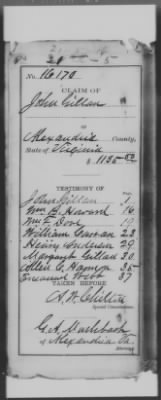 No. 16170
CLAIM OF
John Gillan
OF
Alexandria County,
State of Virginia
$ 1135.00
TESTIMONY OF
Page
John Gillan 1
Wm H. Howard 16
Wm Dove 19
William 23
Henry Anderson 29
Margaret Gillan 30
Allen C. Harmon 35
Emanuel Webb 37
TAKEN BEFORE
Special Commissioner.
of Alexandria Va.
Attorney.